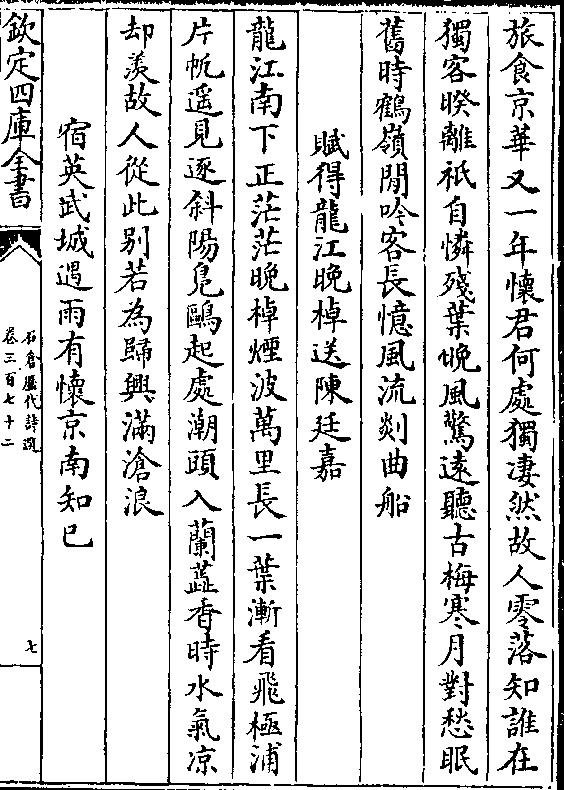 旅食京華又一年懷君何處獨凄然故人零落知誰在
獨客暌離祇自憐殘葉晚風驚遠聽古梅寒月對愁眠
舊時鶴嶺閒吟客長憶風流剡曲船
賦得龍江晚棹送陳廷嘉
龍江南下正茫茫晚棹煙波萬里長一葉漸看飛極浦
片帆遥見逐斜陽鳬鷗起處潮頭入蘭蕋香時水氣凉
却羨故人從此别若為歸興滿滄浪
宿英武城遇雨有懷京南知己
欽定四庫全書
石倉歷代詩選
卷三百七十二
七